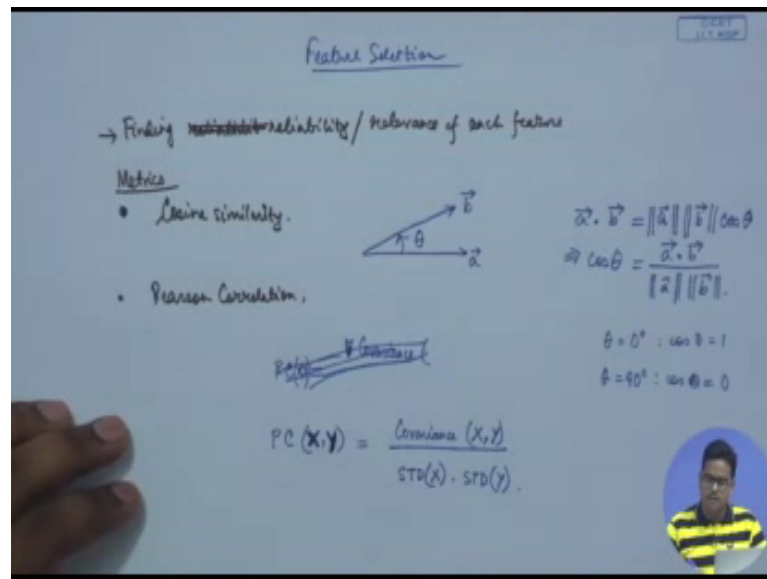 CET
I.I.T. KGP
Feature Selection
→ Finding reliability / relevance of each feature
Metrics
• Cosine similarity.
b
θ
a
a · b = ||a|| ||b|| cos θ
⇒ cos θ = a · b / ||a|| ||b||.
• Pearson Correlation.
θ = 0° : cos θ = 1
θ = 90° : cos θ = 0
Covariance (
PC (X,Y) = Covariance (X,Y)
STD(X) . STD(Y) .